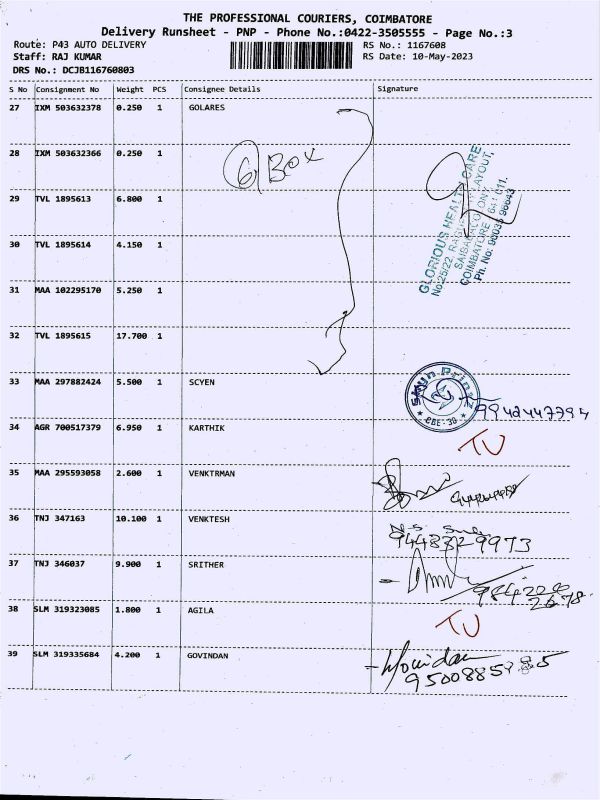 THE PROFESSIONAL COURIERS, COIMBATORE
Delivery Runsheet - PNP - Phone No.:0422-3505555 - Page No.:3
Route: P43 AUTO DELIVERY RS No.: 1167608
Staff: RAJ KUMAR RS Date: 10-May-2023
DRS No.: DCJB116760803
S No Consignment No Weight PCS Consignee Details Signature
27 IXM 503632378 0.250 1 GOLARES
28 IXM 503632366 0.250 1
6 Box
29 TVL 1895613 6.800 1
30 TVL 1895614 4.150 1
31 MAA 102295170 5.250 1
32 TVL 1895615 17.700 1
GLORIOUS HEALTH CARE
LAYOUT,
SAIBABA COLONY,
COIMBATORE - 641 011.
Ph. No: 96035 96643
33 MAA 297882424 5.500 1 SCYEN
CBE-38
34 AGR 700517379 6.950 1 KARTHIK
TU
35 MAA 295593058 2.600 1 VENKTRMAN
36 TNJ 347163 10.100 1 VENKTESH
9448329973
37 TNJ 346037 9.900 1 SRITHER
38 SLM 319323085 1.800 1 AGILA
TU
39 SLM 319335684 4.200 1 GOVINDAN
Govindan